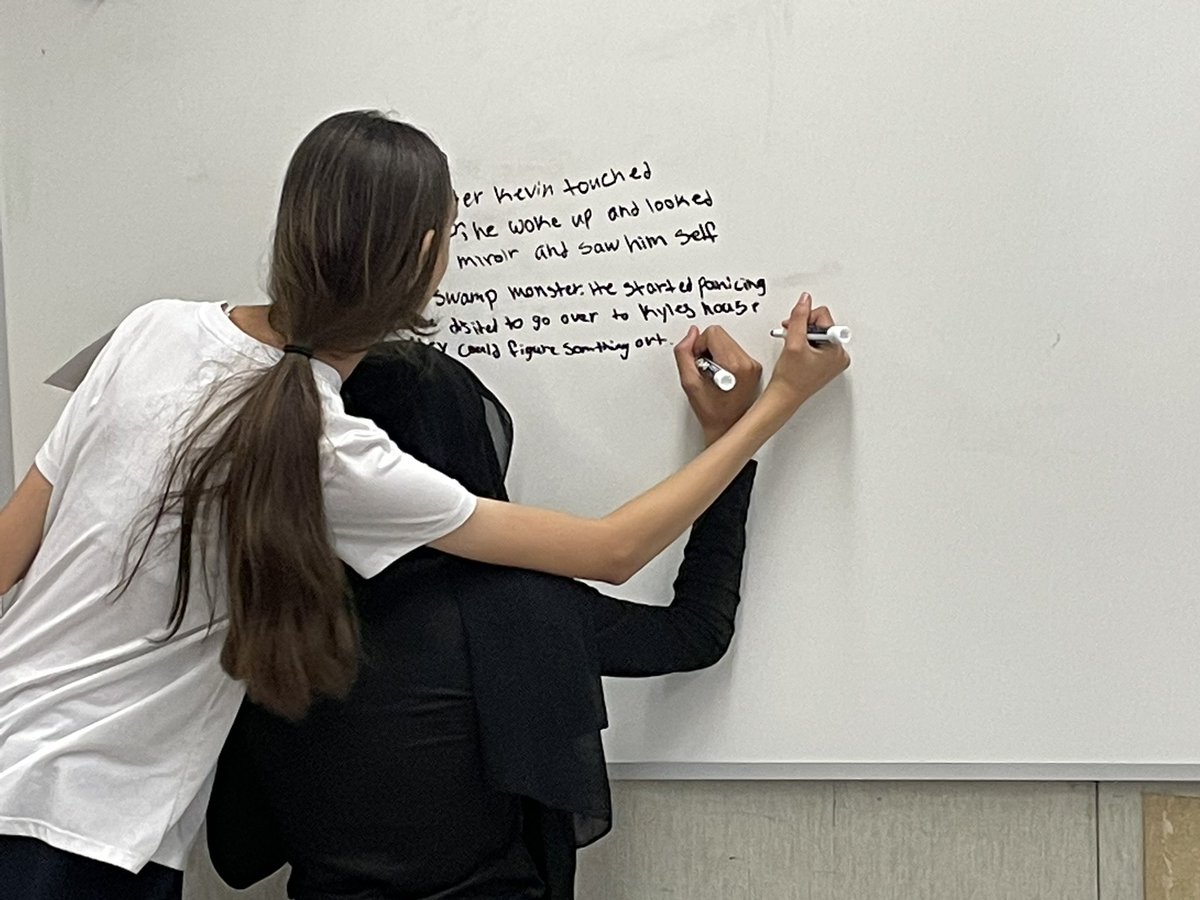 er Kevin touched
he woke up and looked
miroir and saw him self
swamp monster. He started panicing
disited to go over to Kyles house
could figure somthing out.